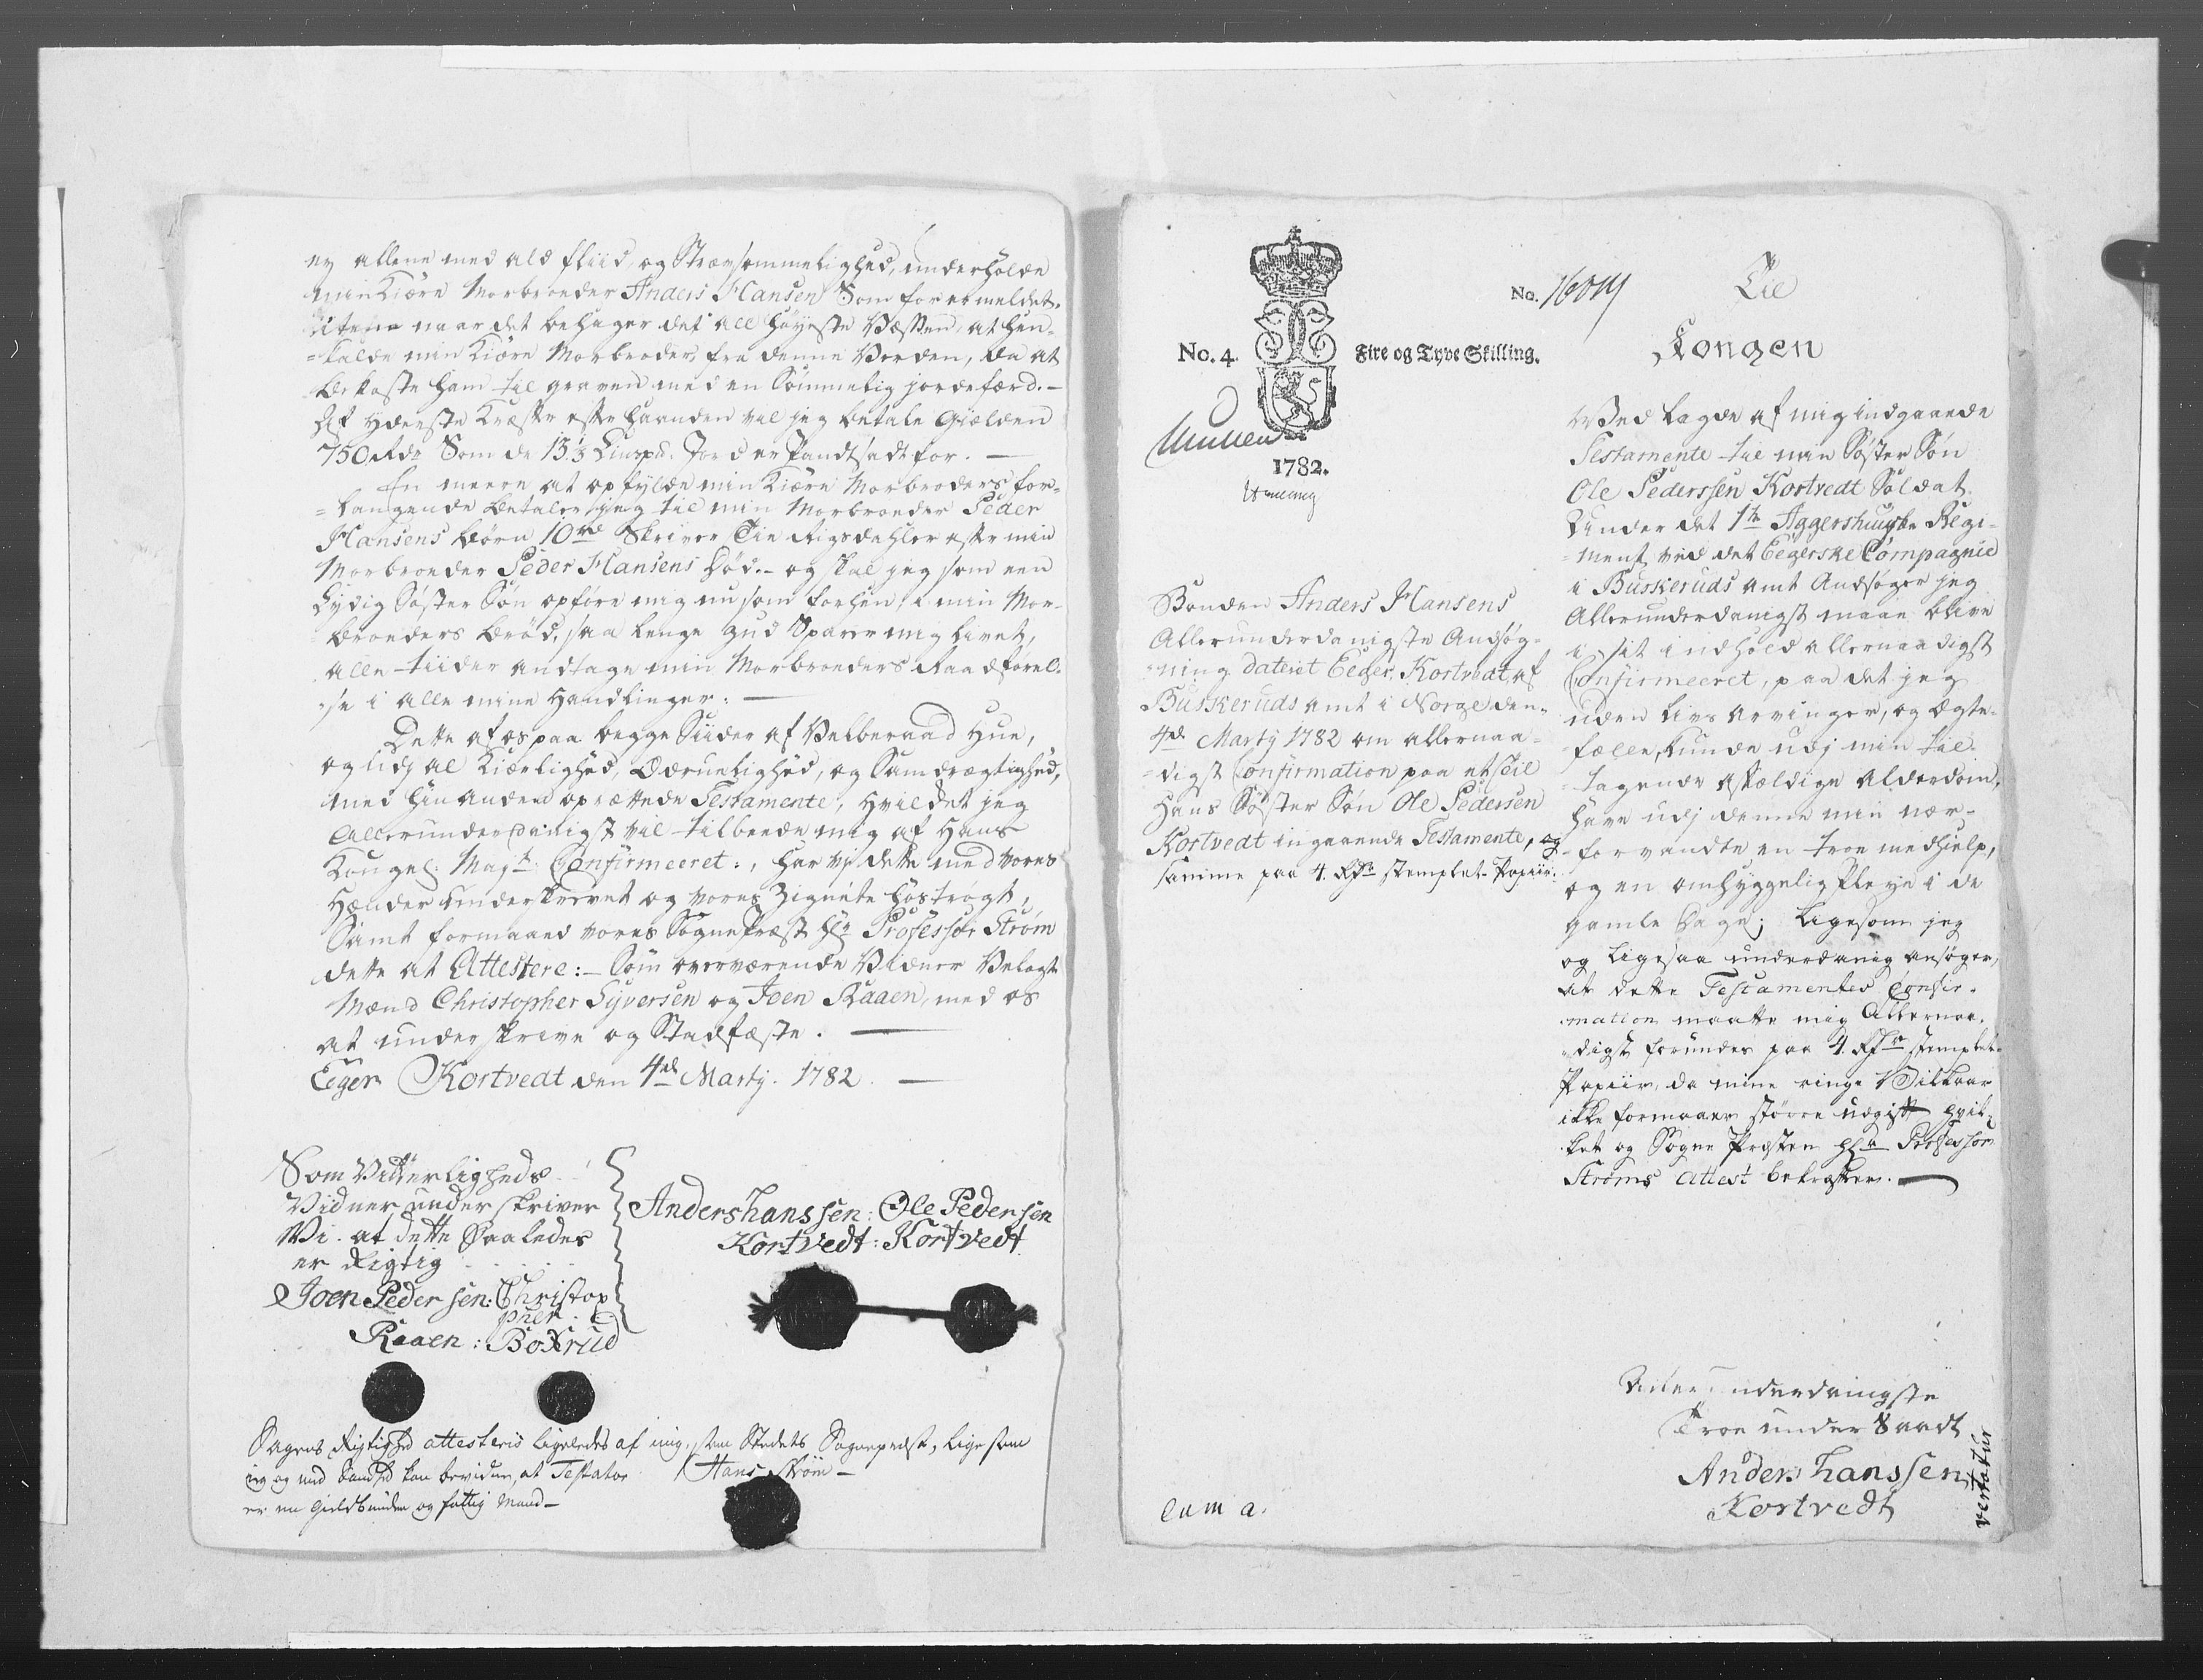 ey allene med ald fliid, og Strævsommelighed, underholde
min Kiære Morbroeder Anders Hansen Som for er meldet.
naar det behager det All høyeste Væssen, at hen-
=kalde min Kiære Morbroder, fra denne Verden, da at
bekoste ham til graven med en Sømmelig jordefærd. —
Af yderste Kræfter efter haanden vil jeg betale Gielden
750 Rdr Som de 13 1/3 Lispd. Jord er Pandtsadt for. —
En meere at opfylde min Kiære Morbroders for-
=langende betaler jeg til min Morbroeder Peder
Hansens børn 10 rdr Skriver Tie Rigsdahler efter min
Morbroeder Peder Hansens Død. - og skal jeg som een
Lydig Søster Søn opføre mig nu som forhen, i min Mor-
broeders brød, saa lenge gud Sparer mig livet,
alle tiider andtage min Morbroeders Raadførel-
se i alle mine Handlinger: —
Dette af os paa begge Siider af Velberaad Hue,
og udj al Kiærlighed, Ædruelighed, og Samdrægtighed,
med hinanden oprættede Testamente, Hvildet jeg
Allerunderdanigst vil tilbeede mig af Hans
Kongel: Mayt: Confirmeeret:, har vj dette med vores
Hænder Underskrevet og vores Zignete hostrøgt,
Samt formaaed vores Sognepræst Hr Professor Strøm
dette at Attestere: - Som overværende Vidner Velagte
Mænd Christopher Syversen og Joen Raaen, med os
at underskrive og Stadfæste. —
Eger Kortvedt den 4de Martij. 1782. —
Som Vitterligheds
Vidner underskriver
Vi. at dette Saaledes
er Rigtig
Joen Pedersen: Christop
pher:
Raaen: Boxrud
Anders hanssen: Ole Pedersen
Kortvedt: Kortvedt
Sagens Rigtighed attesteris ligeledes af mig, som Stedets Sognepræst, ligesom
jeg og med Sandhed kan bevidne, at Testator
er en Gieldbunden og fattig Mand —
Hans Strøm —
No. 4.
Fire og Tyve Skilling.
1782.
No. 16014
Bonden Anders Hansens
Allerunderdanigste Andsøg-
=ning dateret Eeger, Kortvedt af
Buskeruds amt i Norge den
4de Martij 1782 om allernaa-
=digst Confirmation paa et til
Hans Søster Søn Ole Pedersen
Kortvedt ingaaende Testamente, og
samme paa 4. Rdr stemplet Papiir.
cum a.
Til
Kongen
Vedlagde af mig indgaaede
Testamente til min Søster Søn
Ole Pederssen Kortvedt Soldat
Under det 1te Aggershuusske Regi-
=ment, ved det Eegerske Compagnie
i Buskeruds amt Andsøger jeg
Allerunderdanigst maae blive
i sit indhold allernaadigst
Confirmeeret, paa det jeg
uden livs arvinger, og Ægte-
fælle, kunde udj min til-
tagende affældige alderdom,
have udj denne min nær-
forvandte, en troe medhielp,
og en omhyggelig pleye i de
gamle Dage; Ligesom jeg
og ligesaa underdanig ansøger,
at dette Testamentes Confir-
mation maatte mig Allernaa-
digst forundes paa 4. Rdr stemplet
Papiir, da mine ringe Vilkaar
ikke formaaer større udgift hvil-
ket og Sogne Præsten Hr Professor
Strøms Attest bekræfter. —
Allerunderdanigste
Troe undersaadt
Anders hanssen
Kortvedt
vertatur